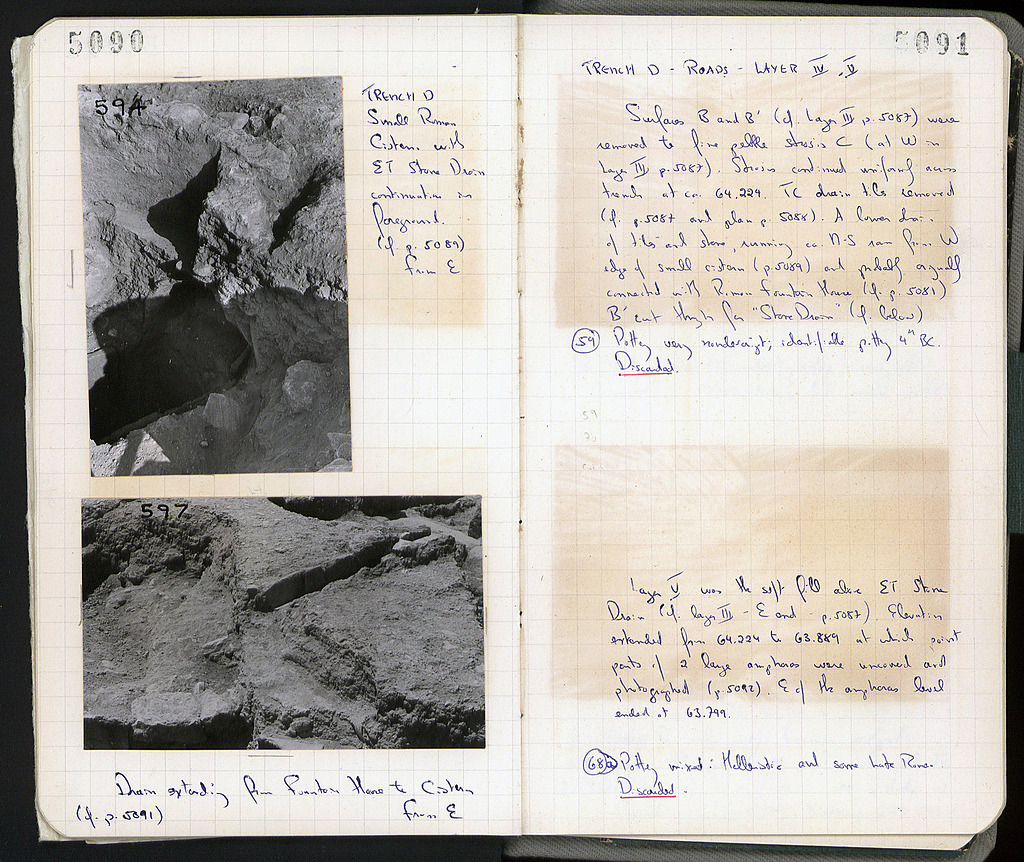 5090
594
TRENCH D
Small Roman
Cistern with
ET Stone Drain
continuation in
foreground.
(cf. p. 5089)
from E
597
Drain extending from Fountain House to Cistern
(cf. p. 5091) from E
5091
TRENCH D - ROADS - LAYER IV, V
Surfaces B and B' (cf. Layer III p. 5087) were
removed to fine pebble strosis C (at W in
Layer III p. 5087). Strosis continued uniformly across
trench at ca. 64.229. TC drain tiles removed
(cf. p. 5087 and plan p. 5088). A lower drain
of tiles and stone, running ca. N-S ran from W
edge of small cistern (p. 5089) and probably originally
connected with Roman Fountain House (cf. p. 5081)
B' cut through for "Stone Drain" (cf. below)
59 Pottery very nondescript; identifiable pottery 4th BC.
Discarded.
59
Layer V was the soft fill above ET Stone
Drain (cf. layer III - E and p. 5087). Elevation
extended from 64.224 to 63.889 at which point
parts of 2 large amphoras were uncovered and
photographed (p. 5092). E of the amphoras level
ended at 63.799.
68a Pottery mixed: Hellenistic and some Late Roman.
Discarded.